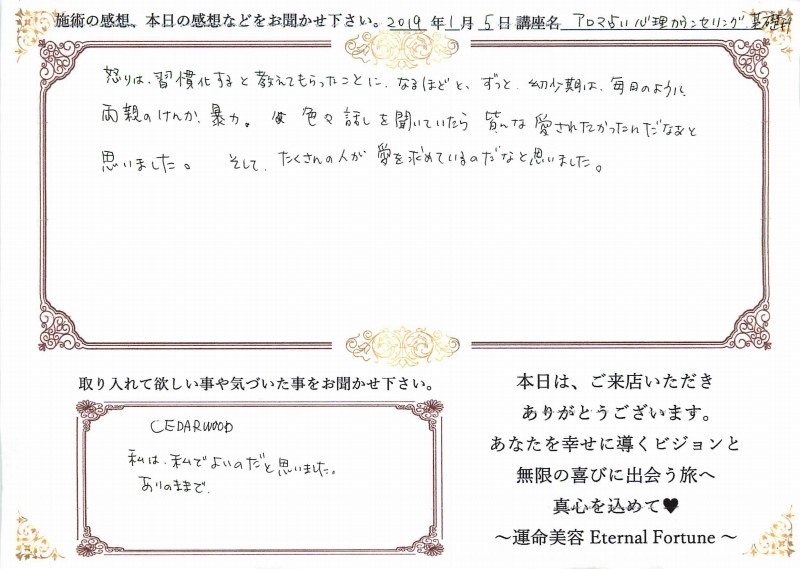 施術の感想、本日の感想などをお聞かせ下さい。2019年1月5日講座名 アロマ占い心理カウンセリング
怒りは、習慣化すると教えてもらったことに、なるほどと、ずっと、幼少期は、毎日のように、
両親のけんか、暴力。色々話しを聞いていたら皆んな愛されたかったんだなあと
思いました。そして、たくさんの人が愛を求めているのだなと思いました。
取り入れて欲しい事や気づいた事をお聞かせ下さい。
CEDARWOOD
私は、私でよいのだと思いました。
ありのままで、
本日は、ご来店いただき
ありがとうございます。
あなたを幸せに導くビジョンと
無限の喜びに出会う旅へ
真心を込めて♥
～運命美容 Eternal Fortune～